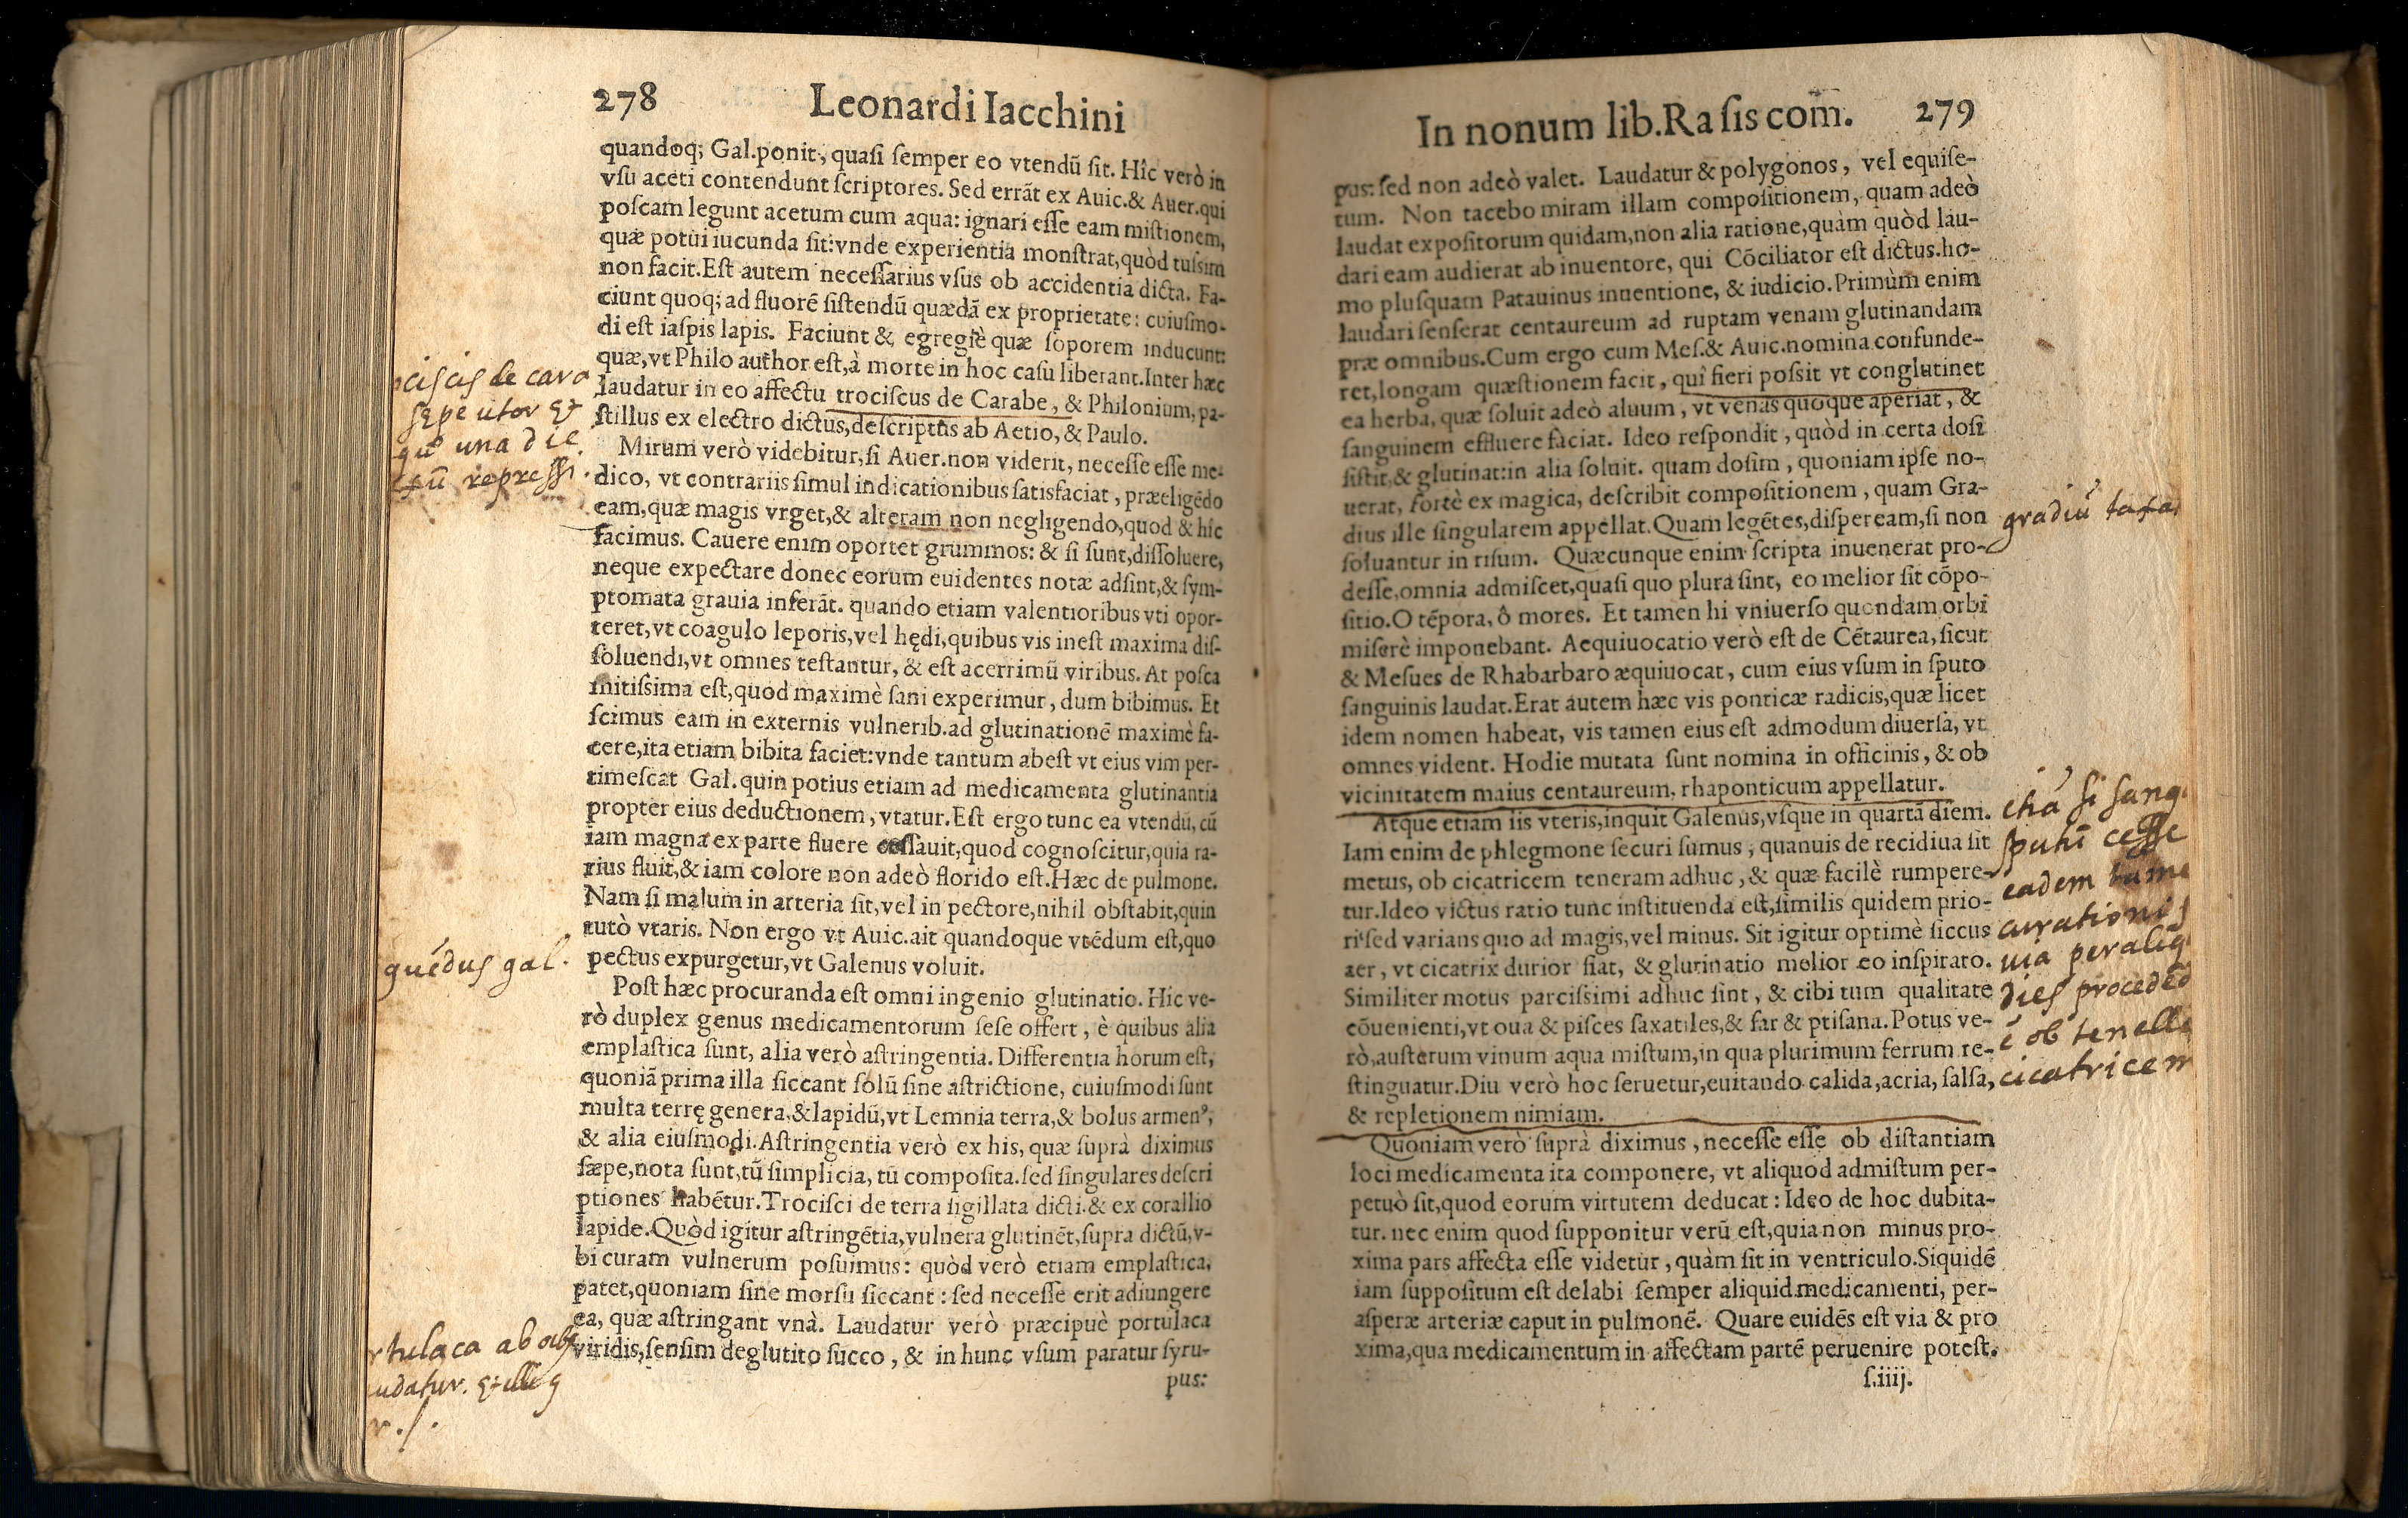 278 Leonardi Iacchini
quandoq; Gal.ponit, quasi semper eo vtendũ sit. Hîc verò in
vsu aceti contendunt scriptores. Sed errãt ex Auic.& Auer.qui
poscam legunt acetum cum aqua: ignari esse eam mistionem,
quæ potui iucunda sit:vnde experientia monstrat,quòd tussim
non facit.Est autem necessarius vsus ob accidentia dicta. Fa-
ciunt quoq; ad fluorẽ sistendũ quædã ex proprietate: cuiusmo-
di est iaspis lapis. Faciunt & egregiè quæ soporem inducunt:
quæ,vt Philo author est,à morte in hoc casu liberant.Inter hæc
laudatur in eo affectu trociscus de Carabe, & Philonium, pa-
stillus ex electro dictus,descriptus ab Aetio,& Paulo.
Mirum verò videbitur,si Auer.non viderit, necesse esse me-
dico, vt contrariis simul indicationibus satisfaciat, præeligẽdo
eam,quæ magis vrget,& alteram non negligendo,quod & hîc
facimus. Cauere enim oportet grummos: & si sunt,dissoluere,
neque expectare donec eorum euidentes notæ adsint,& sym-
ptomata grauia inferãt. quando etiam valentioribus vti opor-
teret,vt coagulo leporis,vel hędi,quibus vis inest maxima dis-
soluendi,vt omnes testantur, & est acerrimũ viribus. At posca
mitissima est,quod maximè sani experimur, dum bibimus. Et
scimus eam in externis vulnerib.ad glutinationẽ maximè fa-
cere,ita etiam bibita faciet:vnde tantum abest vt eius vim per-
timescat Gal.quin potius etiam ad medicamenta glutinantia
propter eius deductionem, vtatur.Est ergo tunc ea vtendũ, cũ
iam magna ex parte fluere cessauit,quod cognoscitur,quia ra-
rius fluit,& iam colore non adeò florido est.Hæc de pulmone.
Nam si malum in arteria sit,vel in pectore,nihil obstabit,quin
tutò vtaris. Non ergo vt Auic.ait quandoque vtẽdum est,quo
pectus expurgetur,vt Galenus voluit.
Post hæc procuranda est omni ingenio glutinatio. Hîc ve-
rò duplex genus medicamentorum sese offert, è quibus alia
emplastica sunt, alia verò astringentia. Differentia horum est,
quoniã prima illa siccant solũ sine astrictione, cuiusmodi sunt
multa terrę genera,& lapidũ,vt Lemnia terra,& bolus armenꝰ,
& alia eiusmodi.Astringentia verò ex his, quæ suprà diximus
sæpe,nota sunt,tũ simplicia, tũ composita.sed singulares descri
ptiones habẽtur.Trocisci de terra sigillata dicti.& ex corallio
lapide.Quòd igitur astringẽtia,vulnera glutinẽt,supra dictũ,v-
bi curam vulnerum posuimus: quòd verò etiam emplastica,
patet,quoniam sine morsu siccant: sed necesse erit adiungere
ea, quæ astringant vnà. Laudatur verò præcipuè portulaca
viridis,sensim deglutito succo, & in hunc vsum paratur syru-
pus:
ciscis de cara
sępe utor &
una die
repressi.
gal.
tulaca ab
udatur.
In nonum lib.Rasis com. 279
pus: sed non adeò valet. Laudatur & polygonos, vel equise-
tum. Non tacebo miram illam compositionem, quam adeò
laudat expositorum quidam,non alia ratione,quàm quòd lau-
dari eam audierat ab inuentore, qui Cõciliator est dictus.ho-
mo plusquam Patauinus inuentione, & iudicio.Primùm enim
laudari senserat centaureum ad ruptam venam glutinandam
præ omnibus.Cum ergo cum Mes.& Auic.nomina confunde-
ret,longam quæstionem facit, quî fieri possit vt conglutinet
ea herba, quæ soluit adeò aluum, vt venas quoque aperiat, &
sanguinem effluere faciat. Ideo respondit, quòd in certa dosi
sistit,& glutinat:in alia soluit. quam dosim, quoniam ipse no-
uerat, fortè ex magica, describit compositionem, quam Gra-
dius ille singularem appellat.Quam legẽtes,dispeream,si non
soluantur in risum. Quæcunque enim scripta inuenerat pro-
desse,omnia admiscet,quasi quo plura sint, eo melior sit cõpo-
sitio.O tẽpora, ô mores. Et tamen hi vniuerso quondam orbi
miserè imponebant. Aequiuocatio verò est de Cẽtaurea, sicut
& Mesues de Rhabarbaro æquiuocat, cum eius vsum in sputo
sanguinis laudat.Erat autem hæc vis ponticæ radicis,quæ licet
idem nomen habeat, vis tamen eius est admodum diuersa, vt
omnes vident. Hodie mutata sunt nomina in officinis, & ob
vicinitatem maius centaureum, rhaponticum appellatur.
Atque etiam iis vteris,inquit Galenus,vsque in quartã diem.
Iam enim de phlegmone securi sumus, quanuis de recidiua sit
metus, ob cicatricem teneram adhuc, & quæ facilè rumpere-
tur.Ideo victus ratio tunc instituenda est,similis quidem prio-
ri:sed varians quo ad magis,vel minus. Sit igitur optimè siccus
aer, vt cicatrix durior fiat, & glutinatio melior eo inspirato.
Similiter motus parcissimi adhuc sint, & cibi tum qualitate
cõuenienti,vt oua & pisces saxatiles,& far & ptisana. Potus ve-
rò,austerum vinum aqua mistum,in qua plurimum ferrum re-
stinguatur.Diu verò hoc seruetur,euitando calida,acria, salsa,
& repletionem nimiam.
Quoniam verò suprà diximus, necesse esse ob distantiam
loci medicamenta ita componere, vt aliquod admistum per-
petuò sit,quod eorum virtutem deducat: Ideo de hoc dubita-
tur. nec enim quod supponitur verũ est,quia non minus pro-
xima pars affecta esse videtur, quàm sit in ventriculo.Siquidẽ
iam suppositum est delabi semper aliquid medicamenti, per-
asperæ arteriæ caput in pulmonẽ. Quare euidẽs est via & pro
xima,qua medicamentum in affectam partẽ peruenire potest.
s.iiij.
gradiũ
si sang
cesse
eadem
curationis
uia
dies
ob tenell
cicatricem